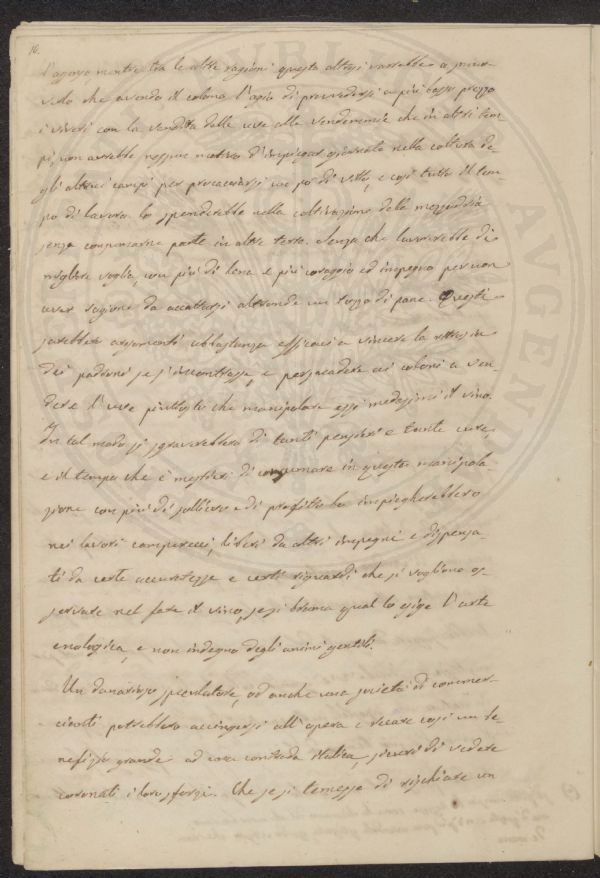 16.
l'agogo mentre tra le altre ragioni questa altresì varrebbe a
che avendo il colono l'agio di provvedersi a più basso prezzo
i viveri con la vendita delle uve alle vendemmie che in altri tem-
pi, non avrebbe nessun motivo d'impiegar giornate nella coltura de-
gli altrui campi per procacciarsi un po' di vitto, e così tutto il tem-
po di lavoro lo spenderebbe nella coltivazione della mezzadria
senza consumarne parte in altre terre. Senza che lavorerebbe di
migliore voglia, con più di lena e più coraggio ed impegno per non
aver ragione da accattarsi altronde un tozzo di pane. Questi
sarebbero argomenti abbastanza efficaci a vincere la
dei padroni se s'incontrasse, e persuadere ai coloni a ven-
dere l'uve piuttosto che manipolare essi medesimi il vino.
In tal modo si sgraverebbero di tanti pensieri e tante cure,
e il tempo che è mestieri di consumare in questa manipola-
zione con più di sollievo e di profitto lo impiegherebbero
nei lavori camperecci, liberi da altri impegni e dispensa-
ti da certe accuratezze e certi riguardi che si vogliono os-
servare nel fare il vino, se si brama qual lo esige l'arte
enologica, e non indegno degli animi gentili.
Un danaroso speculatore, od anche una società di commer-
cianti potrebbero accingersi all'opera e recare così un be-
nefizio grande ad una contrada italica, sicuri di vedere
coronati i loro sforzi. Che se si temesse di rischiare un